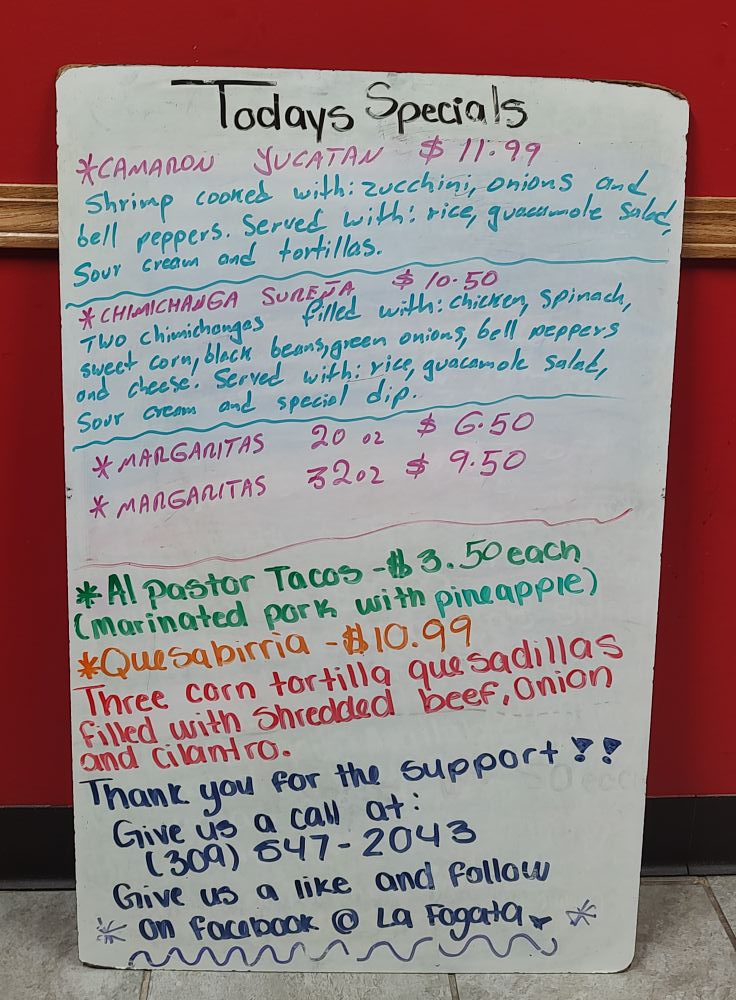 Todays Specials
*CAMARON YUCATAN $ 11.99
Shrimp cooked with: zucchini, onions and
bell peppers. Served with: rice, guacamole salad,
Sour cream and tortillas.
*CHIMICHANGA SUREÑA $ 10.50
Two chimichangas filled with: chicken, spinach,
sweet corn, black beans, green onions, bell peppers
and cheese. Served with: rice, guacamole salad,
Sour cream and special dip.
*MARGARITAS 20 oz $ 6.50
*MARGARITAS 32oz $ 9.50
*Al pastor Tacos -$3.50 each
(Marinated pork with pineapple)
*Quesabirria -$10.99
Three corn tortilla quesadillas
filled with shredded beef, onion
and cilantro.
Thank you for the support!!
Give us a call at:
(309) 647-2043
Give us a like and follow
on facebook @ La Fogata